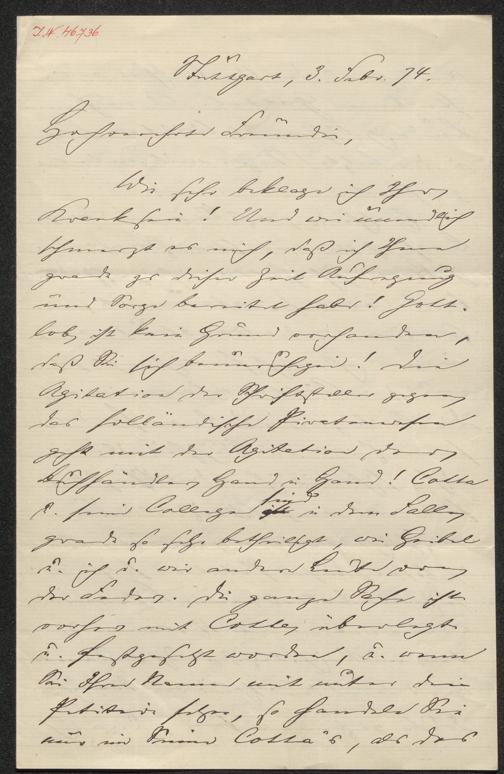 I.N. 46.736
Stuttgart, 3. Febr. 74.
Hochverehrte Freundin,
Wie sehr beklage ich Ihr
Kranksein! Und wie unendlich
schmerzt es mich, daß ich Ihnen
grade zu dieser Zeit Aufregung
und Sorge bereitet habe! Gott-
lob, ist kein Grund vorhanden,
daß Sie sich beunruhigen! Die
Agitation der Schriftsteller gegen
das holländische Piratenwesen
geht mit der Agitation der
Buchhändler Hand in Hand! Cotta
u. seine Collegen sind in dem Falle
grade so sehr betheiligt, wie Geibel
u. ich u. wir andern Leute von
der Feder. Die ganze Sache ist
vorher mit Cotta überlegt
u. festgesetzt worden, u. wenn
Sie Ihren Namen mit unter die
Petition setzen, so handeln Sie
nur im Sinne Cotta's, als das